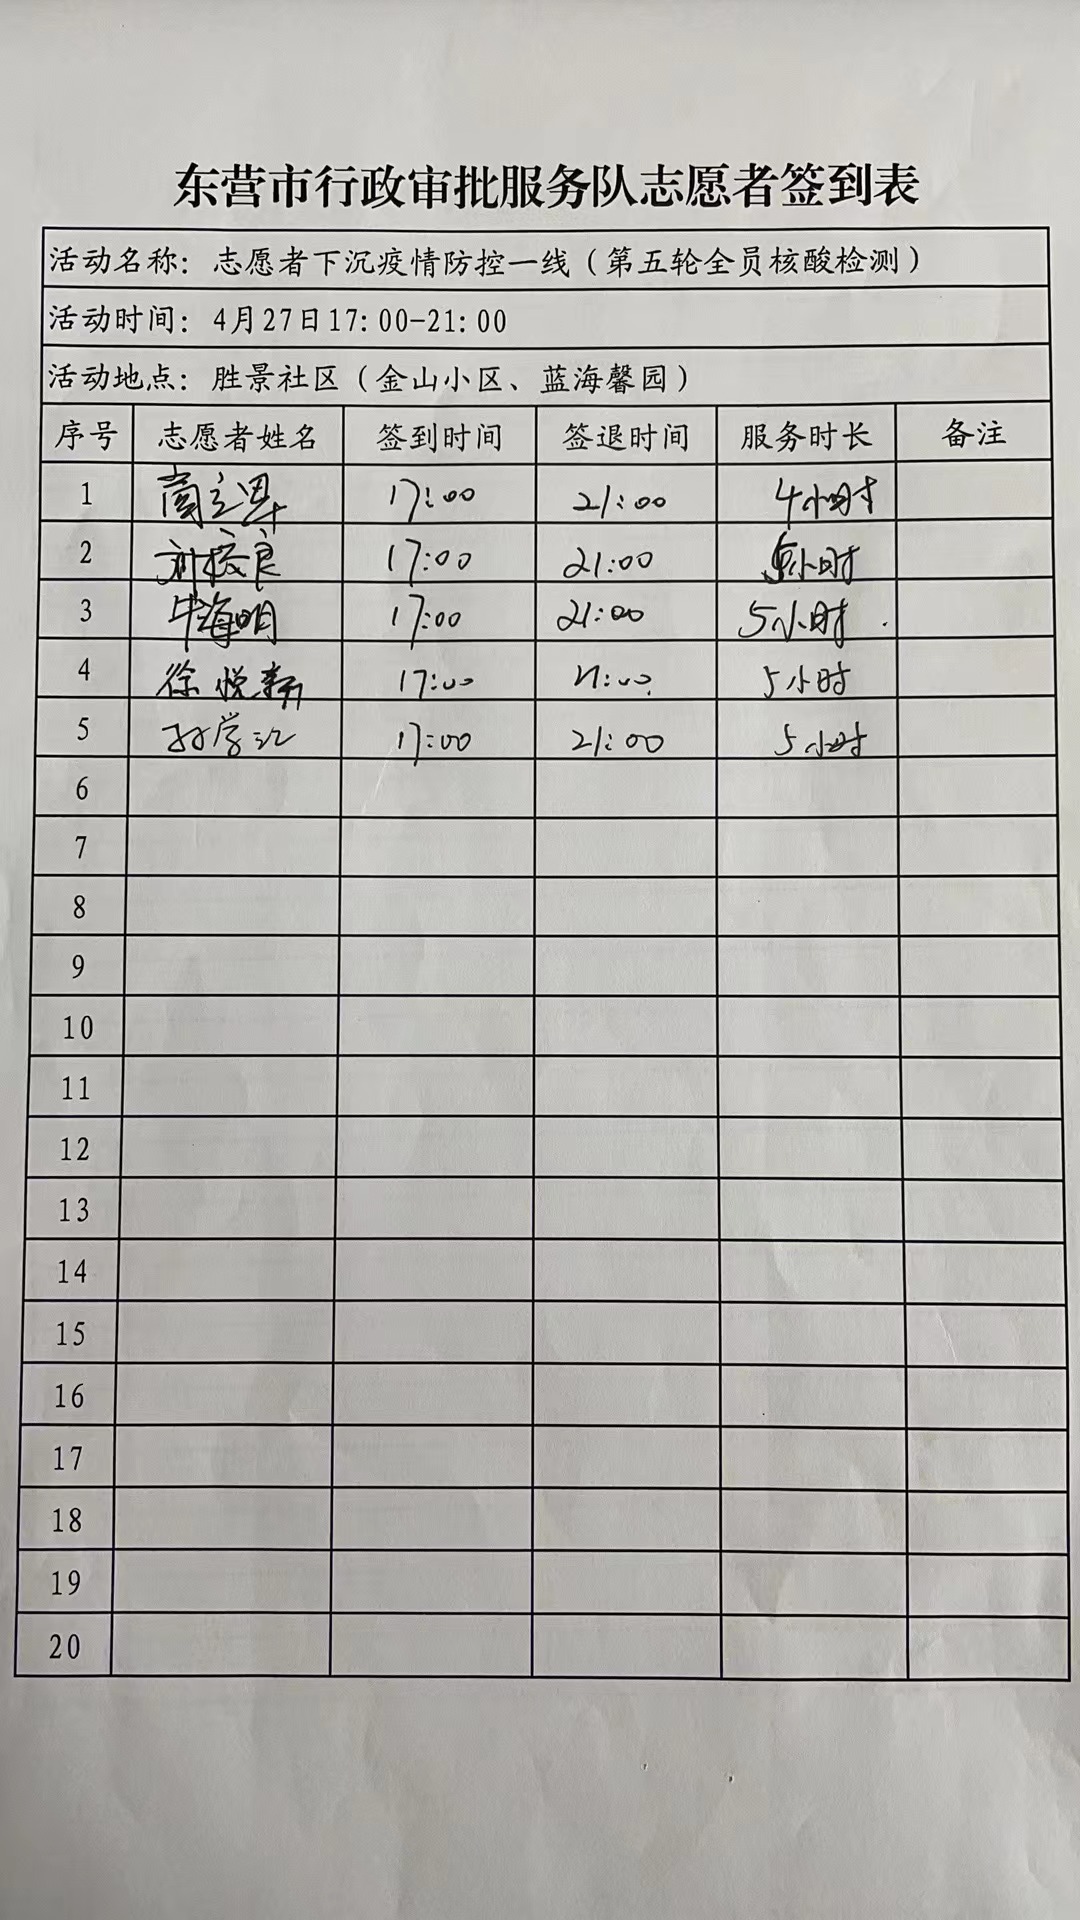 东营市行政审批服务队志愿者签到表
活动名称：志愿者下沉疫情防控一线（第五轮全员核酸检测）
活动时间：4月27日17:00-21:00
活动地点：胜景社区（金山小区、蓝海馨园）
序号 志愿者姓名 签到时间 签退时间 服务时长 备注
1 17:00 21:00 4小时
2 刘俊良 17:00 21:00 5小时
3 牛海明 17:00 21:00 5小时
4 徐悦 17:00 21:00 5小时
5 孙学江 17:00 21:00 5小时
6
7
8
9
10
11
12
13
14
15
16
17
18
19
20